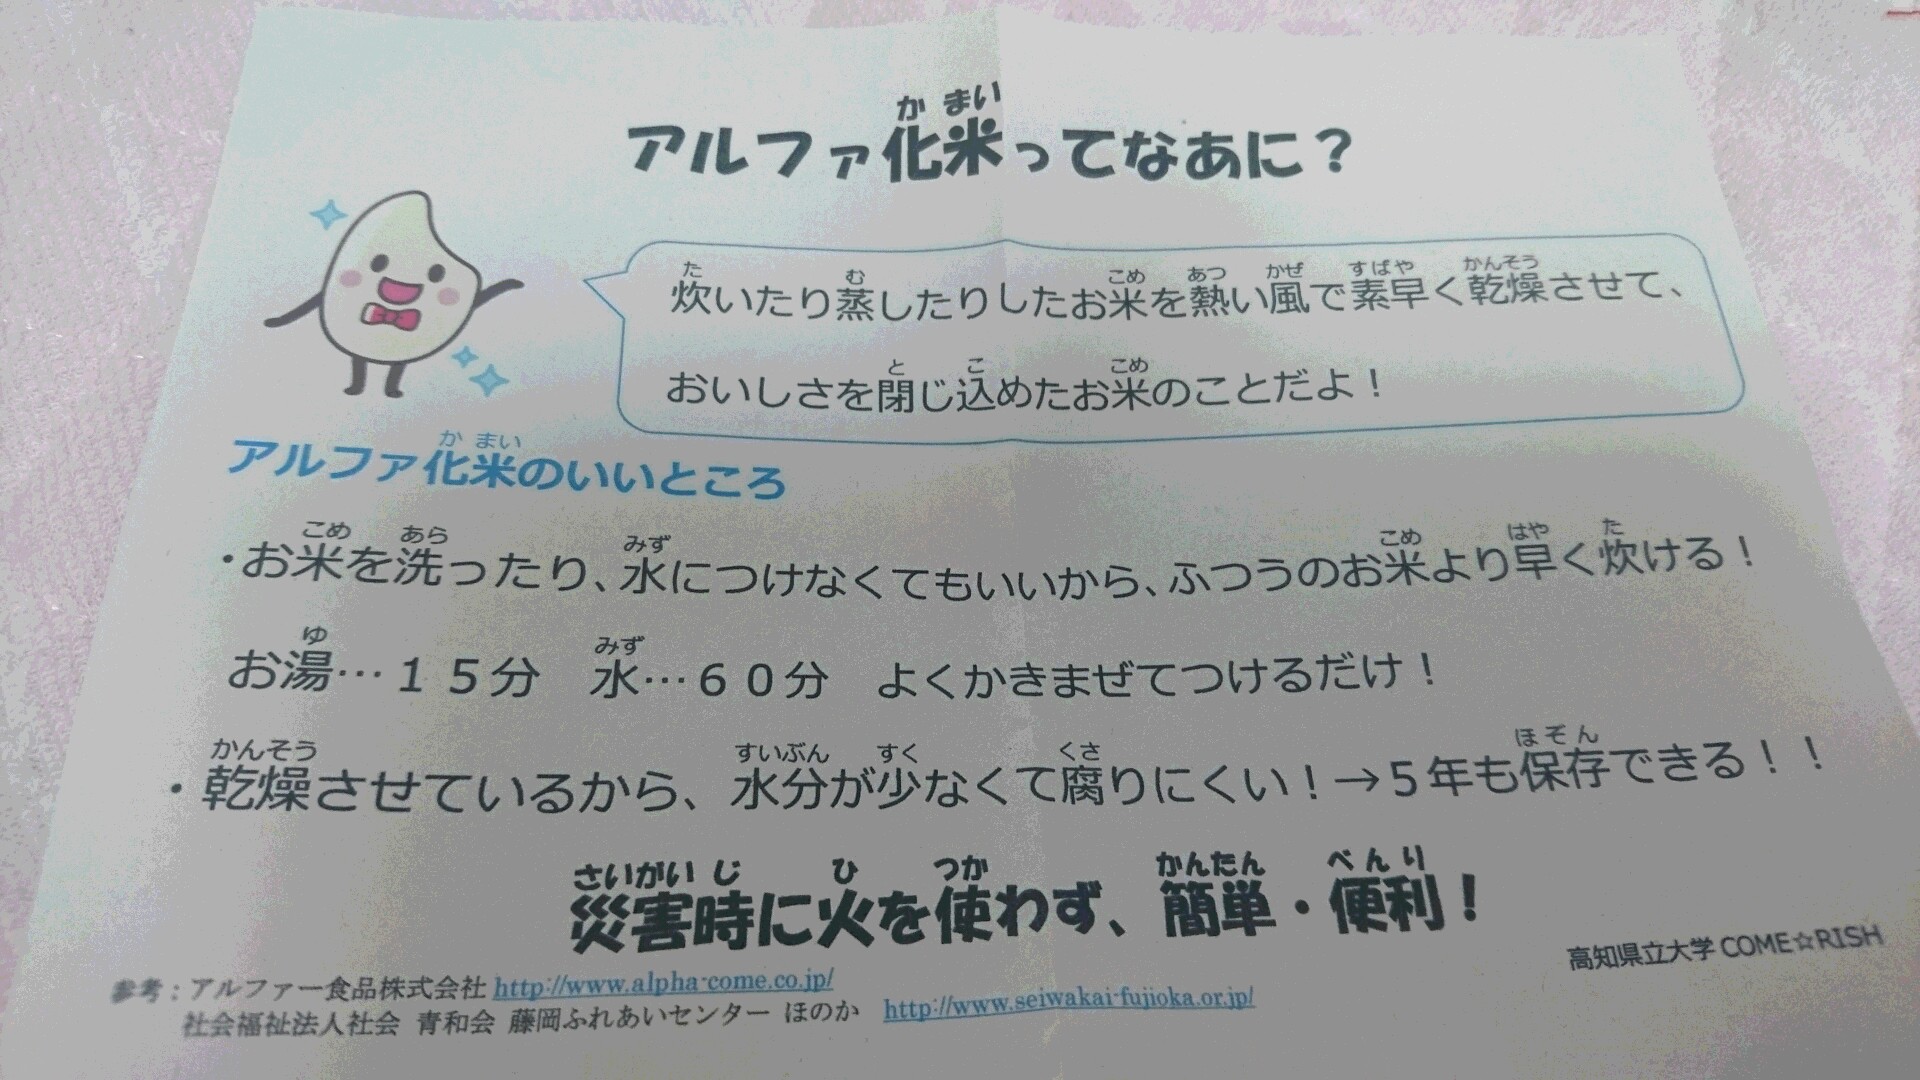 アルファ化米ってなあに？
炊いたり蒸したりしたお米を熱い風で素早く乾燥させて、
おいしさを閉じ込めたお米のことだよ！
アルファ化米のいいところ
・お米を洗ったり、水につけなくてもいいから、ふつうのお米より早く炊ける！
お湯…１５分　水…６０分　よくかきまぜてつけるだけ！
・乾燥させているから、水分が少なくて腐りにくい！→５年も保存できる！！
災害時に火を使わず、簡単・便利！
高知県立大学 COME☆RISH
参考：アルファー食品株式会社 http://www.alpha-come.co.jp/
社会福祉法人社会 青和会 藤岡ふれあいセンター ほのか http://www.seiwakai-fujioka.or.jp/